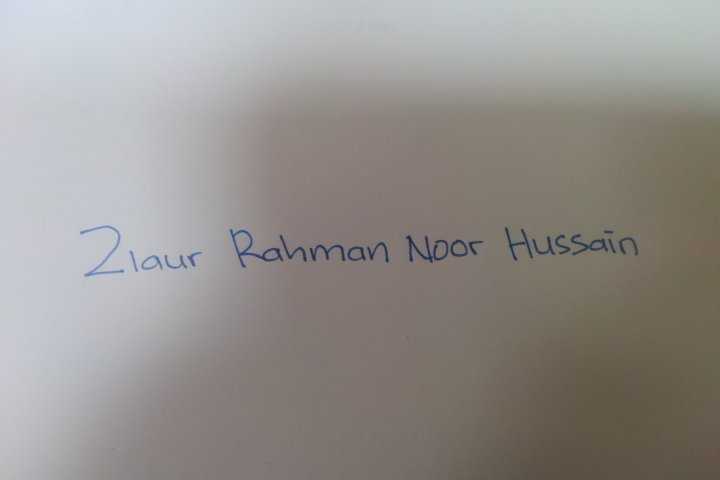 Ziaur Rahman Noor Hussain